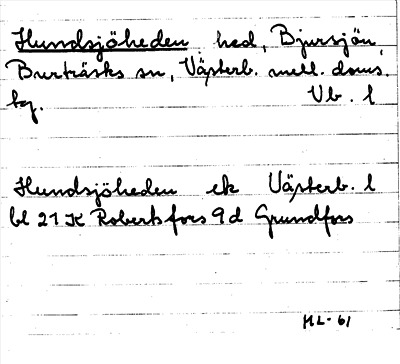 Hundsjöheden, hed, Bjursjön,
Burträsks sn, Västerb. mell. doms.
bg. Vb. l
Hundsjöheden ek Västerb. l
bl 21 K Robertsfors 9 d Grundfors
ML-61